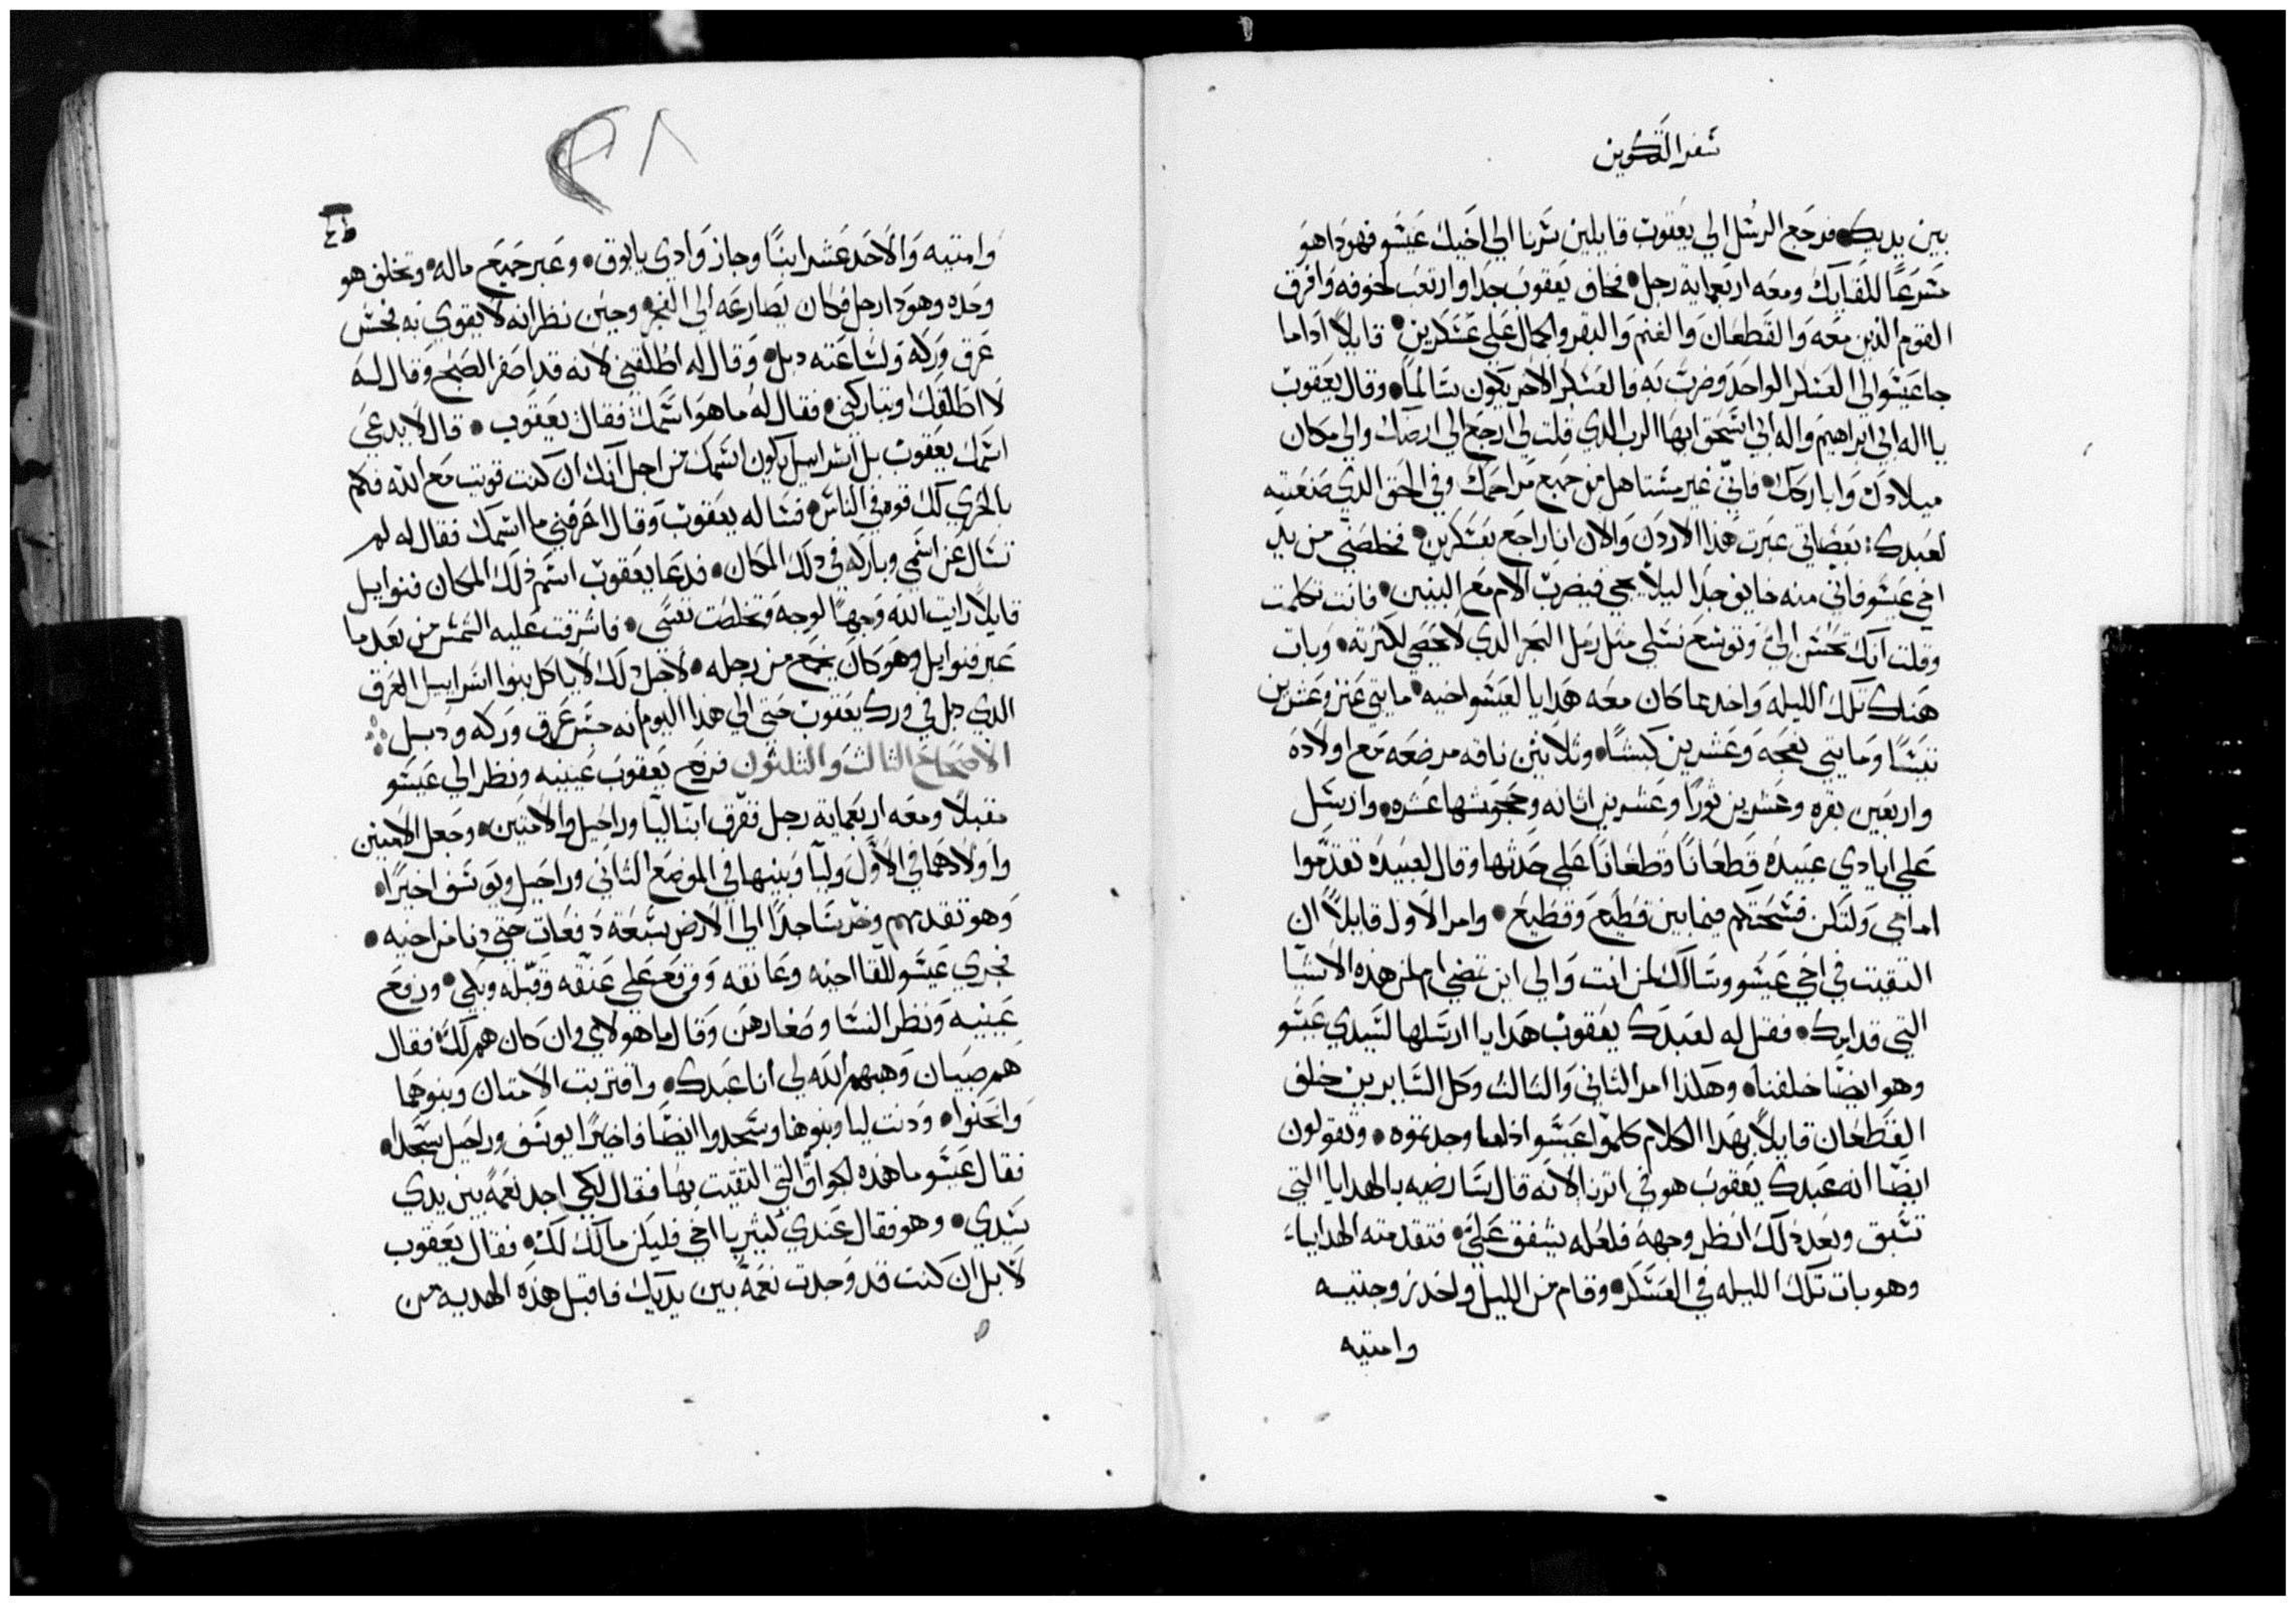 سفر التكوين
بين يديك فرجع الرسل الي يعقوب قايلين سرنا الي اخيك عيسو فهودا هو
مسرعًا للقايك ومعه اربعماية رجل فخاف يعقوب جدا وارتعب لخوفه وافرق
القوم الذين معه والقطعان والغنم والبقر والجمال علي عسكرين قايلاً اذا ما
جا عيسو الي العسكر الواحد وضرب به فالعسكر الاخر يكون سالمًا وقال يعقوب
يا اله ابي ابراهيم واله ابي اسحق ايها الرب الدي قلت لي ارجع الي ارضك والي مكان
ميلادك وابارك فاني غير مستاهل من جميع مراحمك وفي الحق الدي صنعته
لعبدك بعصاتي عبرت هذا الاردن والان انا راجع بعسكرين فخلصني من يد
اخي عيسو فاني منه خايف جدا ليلا يجي فيضرب الام مع البنين فانت تكلمت
وقلت انك تحسن الي وتوسع نسلي مثل رمل البحر الدي لا يحصي لكثرته وبات
هناك تلك الليله واخد مما كان معه هدايا لعيسو اخيه مايتي عنز وعشرين
تيسًا ومايتي نعجه وعشرين كبشًا وثلاثين ناقه مرضعه مع اولاده
واربعين بقره وعشرين ثورًا وعشرين اتانه وجحوشها عشره وارسل
علي ايادي عبيده قطعانًا قطعانًا علي حدتها وقال لعبيده تقدموا
امامي ولتكن فسحتكم فيما بين قطيع وقطيع وامر الاول قايلاً ان
التقيت في اخي عيسو وسالك لمن انت والي اين تمضي ام لمن هذه الاشيا
التي قدامك فقل له لعبدك يعقوب هدايا ارسلها لسيدي عيسو
وهو ايضًا خلفنا وهكذا امر الثاني والثالث وكل السايرين خلف
القطعان قايلاً بهدا الكلام كلموا عيسو اذا ما وجدتموه وتقولون
ايضًا انه عبدك يعقوب هو في اثرنا لانه قال سارضيه بالهدايا التي
تسبق وبعد ذلك انظر وجهه فلعله يشفق علي فتقدمته الهدايا
وهو بات تلك الليله في العسكر وقام من الليل واخد زوجتيه
وامتيه
وامتيه والاحد عشر ابنًا وجاز وادي يابوق وعبر جميع ماله وتخلف هو
وحده وهودا رجل فكان يصارعه الي الفجر وحين نظر انه لا يقوي به فجس
عرق وركه ولساعته دبل وقال له اطلقني لانه قد اصفر الصبح وقال له
لا اطلقك او تباركني فقال له ما هو اسمك فقال يعقوب قال لا يدعي
اسمك يعقوب بل اسراييل يكون اسمك من اجل انك ان كنت قويت مع الله فكم
بالحري لك قوه في الناس فساله يعقوب وقال اعرفني ما اسمك فقال له لم
تسال عن اسمي وباركه في دلك المكان فدعا يعقوب اسم ذلك المكان فنوايل
قايلاً رايت الله وجهًا لوجه وتخلصت نفسي فاشرقت عليه الشمس من بعد ما
عبر فنوايل وهو كان يجمع من رجله لاجل دلك لا ياكل بنوا اسراييل العرق
الدي دبل في ورك يعقوب حتي الي هدا اليوم انه جس عرق وركه ودبل
الاصحاح الثالث والثلثون فرفع يعقوب عينيه ونظر الي عيسو
مقبلاً ومعه اربعماية رجل ففرق ابنا ليا وراحيل والامتين وجعل الامتين
واولادهما في الاول وليا وبنيها في الموضع الثاني وراحيل ويوسف اخيرًا
وهو تقدمهم وخر ساجدًا الي الارض سبعة دفعات حتي دنا من اخيه
فجري عيسو للقا اخيه وعانقه ووقع علي عنقه وقبله وبكي ورفع
عينيه ونظر النسا وصغارهن وقال ما هولاي وان كان هم لك فقال
هم صبيان وهبهم الله لي انا عبدك واقتربت الامتان وبنوهما
وانحنوا ودنت ليا وبنوها وسجدوا ايضًا فاخيرًا يوسف وراحيل سجدا
فقال عيسو ما هذه الجواق التي التقيت بها فقال لكي اجد نعمةً بين يدي
سيدي وهو فقال عندي كثير يا اخي فليكن مالك لك فقال يعقوب
لا بل ان كنت قد وجدت نعمةً بين يديك فاقبل هذه الهديه من